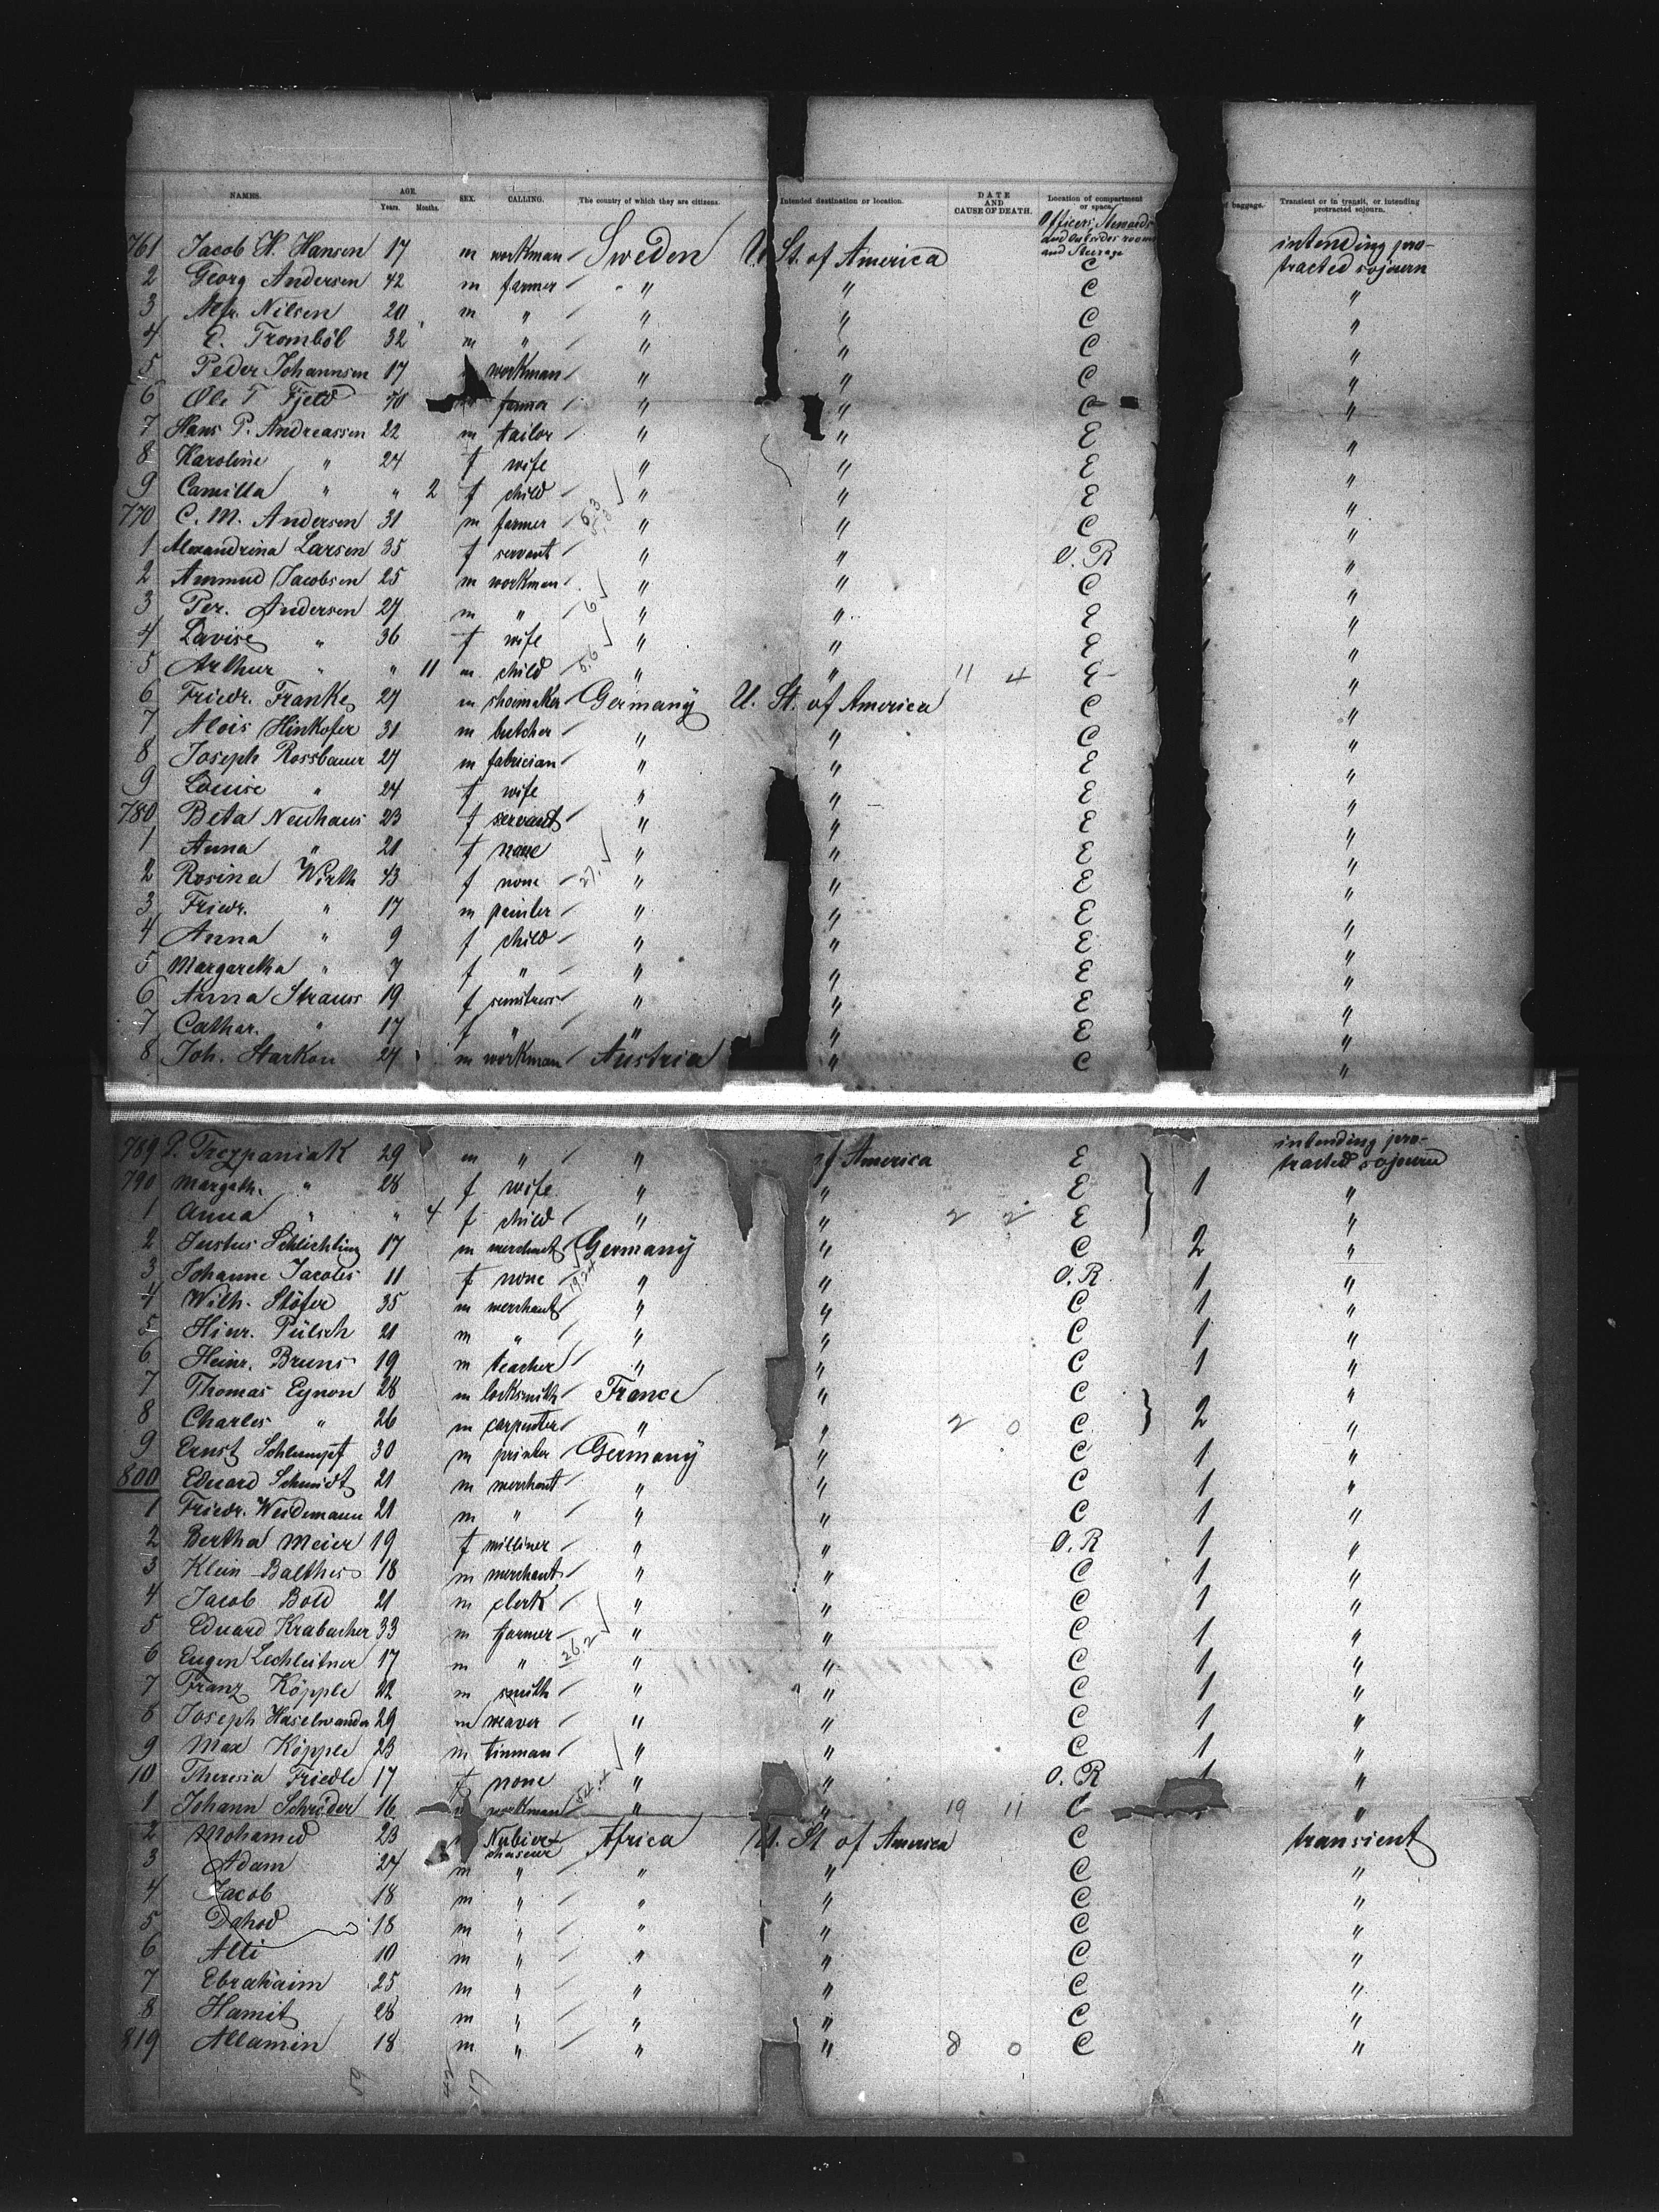 NAMES. AGE. Years. Months. SEX. CALLING. The country of which they are citizens. Intended destination or location. DATE AND CAUSE OF DEATH. Location of compartment or space. of baggage. Transient or in transit, or intending protracted sojourn.
Officers, Stewards and Outsides rooms and Steerage
761 Jacob H. Hansen 17 m workman Sweden U. St. of America C intending protracted sojourn
2 Georg Andersen 42 m farmer " " C "
3 Alfr. Nilsen 20 m " " " C "
4 E. Trombôl 32 m " " " C "
5 Peder Johannsen 17 workman " " C "
6 Ole T Fjeld 40 farmer " " C "
7 Hans P. Andreassen 22 m tailor " " E "
8 Karoline " 24 f wife " " E "
9 Camilla " " 2 f child " " E "
770 C. M. Andersen 31 m farmer " " C "
1 Alexandrina Larsen 35 f servant " " O. R "
2 Ammud Jacobsen 25 m workman " " C "
3 Per. Andersen 27 m " " " E "
4 Lavise " 36 f wife " " E "
5 Arthur " " 11 m child " " 11 4 E "
6 Friedr. Franke 27 m shoemaker Germany U. St. of America C "
7 Alois Hinkofer 31 m butcher " " C "
8 Joseph Rossbauer 27 m fabrician " " E "
9 Louise " 24 f wife " " E "
780 Beta Neuhaus 23 f servant " " E "
1 Anna " 21 f none " " E "
2 Rosina Wirth 43 f none 27. " " E "
3 Friedr. " 17 m painter " " E "
4 Anna " 9 f child " " E "
5 Margaretha " 7 f " " " E "
6 Anna Strauss 19 f semstress " " E "
7 Cathar. " 17 f " " " E "
8 Joh. Starkon 27 m workman Austria " C "
789 P. Trezpaniak 29 m " " of America E intending protracted sojourn
790 Margath. " 28 f wife " " E 1 "
1 Anna " " 4 f child " " 2 2 E "
2 Justus Schlichting 17 m merchant Germany " C 2 "
3 Johanne Jacobs 11 f none " " O. R 1 "
4 Wilh. Stöfer 35 m merchant " " C 1 "
5 Hinr. Pülsch 21 m " " " C 1 "
6 Heinr. Bruns 19 m teacher " " C 1 "
7 Thomas Eynon 28 m locksmith France " C "
8 Charles " 26 m carpenter " " 2 0 C 2 "
9 Ernst Schlumpf 30 m printer Germany " C 1 "
800 Eduard Schmidt 21 m merchant " " C 1 "
1 Friedr. Weidemann 21 m " " " C 1 "
2 Bertha Meier 19 f milliner " " O. R 1 "
3 Klein Balthes 18 m merchant " " C 1 "
4 Jacob Bold 21 m clerk " " C 1 "
5 Eduard Krabacher 33 m farmer " " C 1 "
6 Eugen Lechleitner 17 m " 26.2 " " C 1 "
7 Franz Köpple 22 m smith " " C 1 "
8 Joseph Haselwander 29 m weaver " " C 1 "
9 Max Köpple 23 m tinman " " C 1 "
10 Theresia Friedle 17 f none " " O. R 1 "
1 Johann Schröder 16 workman " " 19 11 C "
2 Mohamed 23 Nubier chaseur Africa U. St of America C transient
3 Adam 27 m " " " C "
4 Jacob 18 m " " " C "
5 Dahod 18 m " " " C "
6 Alli 10 m " " " C "
7 Ebrahaim 25 m " " " C "
8 Hamit 28 m " " " C "
819 Allamin 18 m " " " 8 0 C "